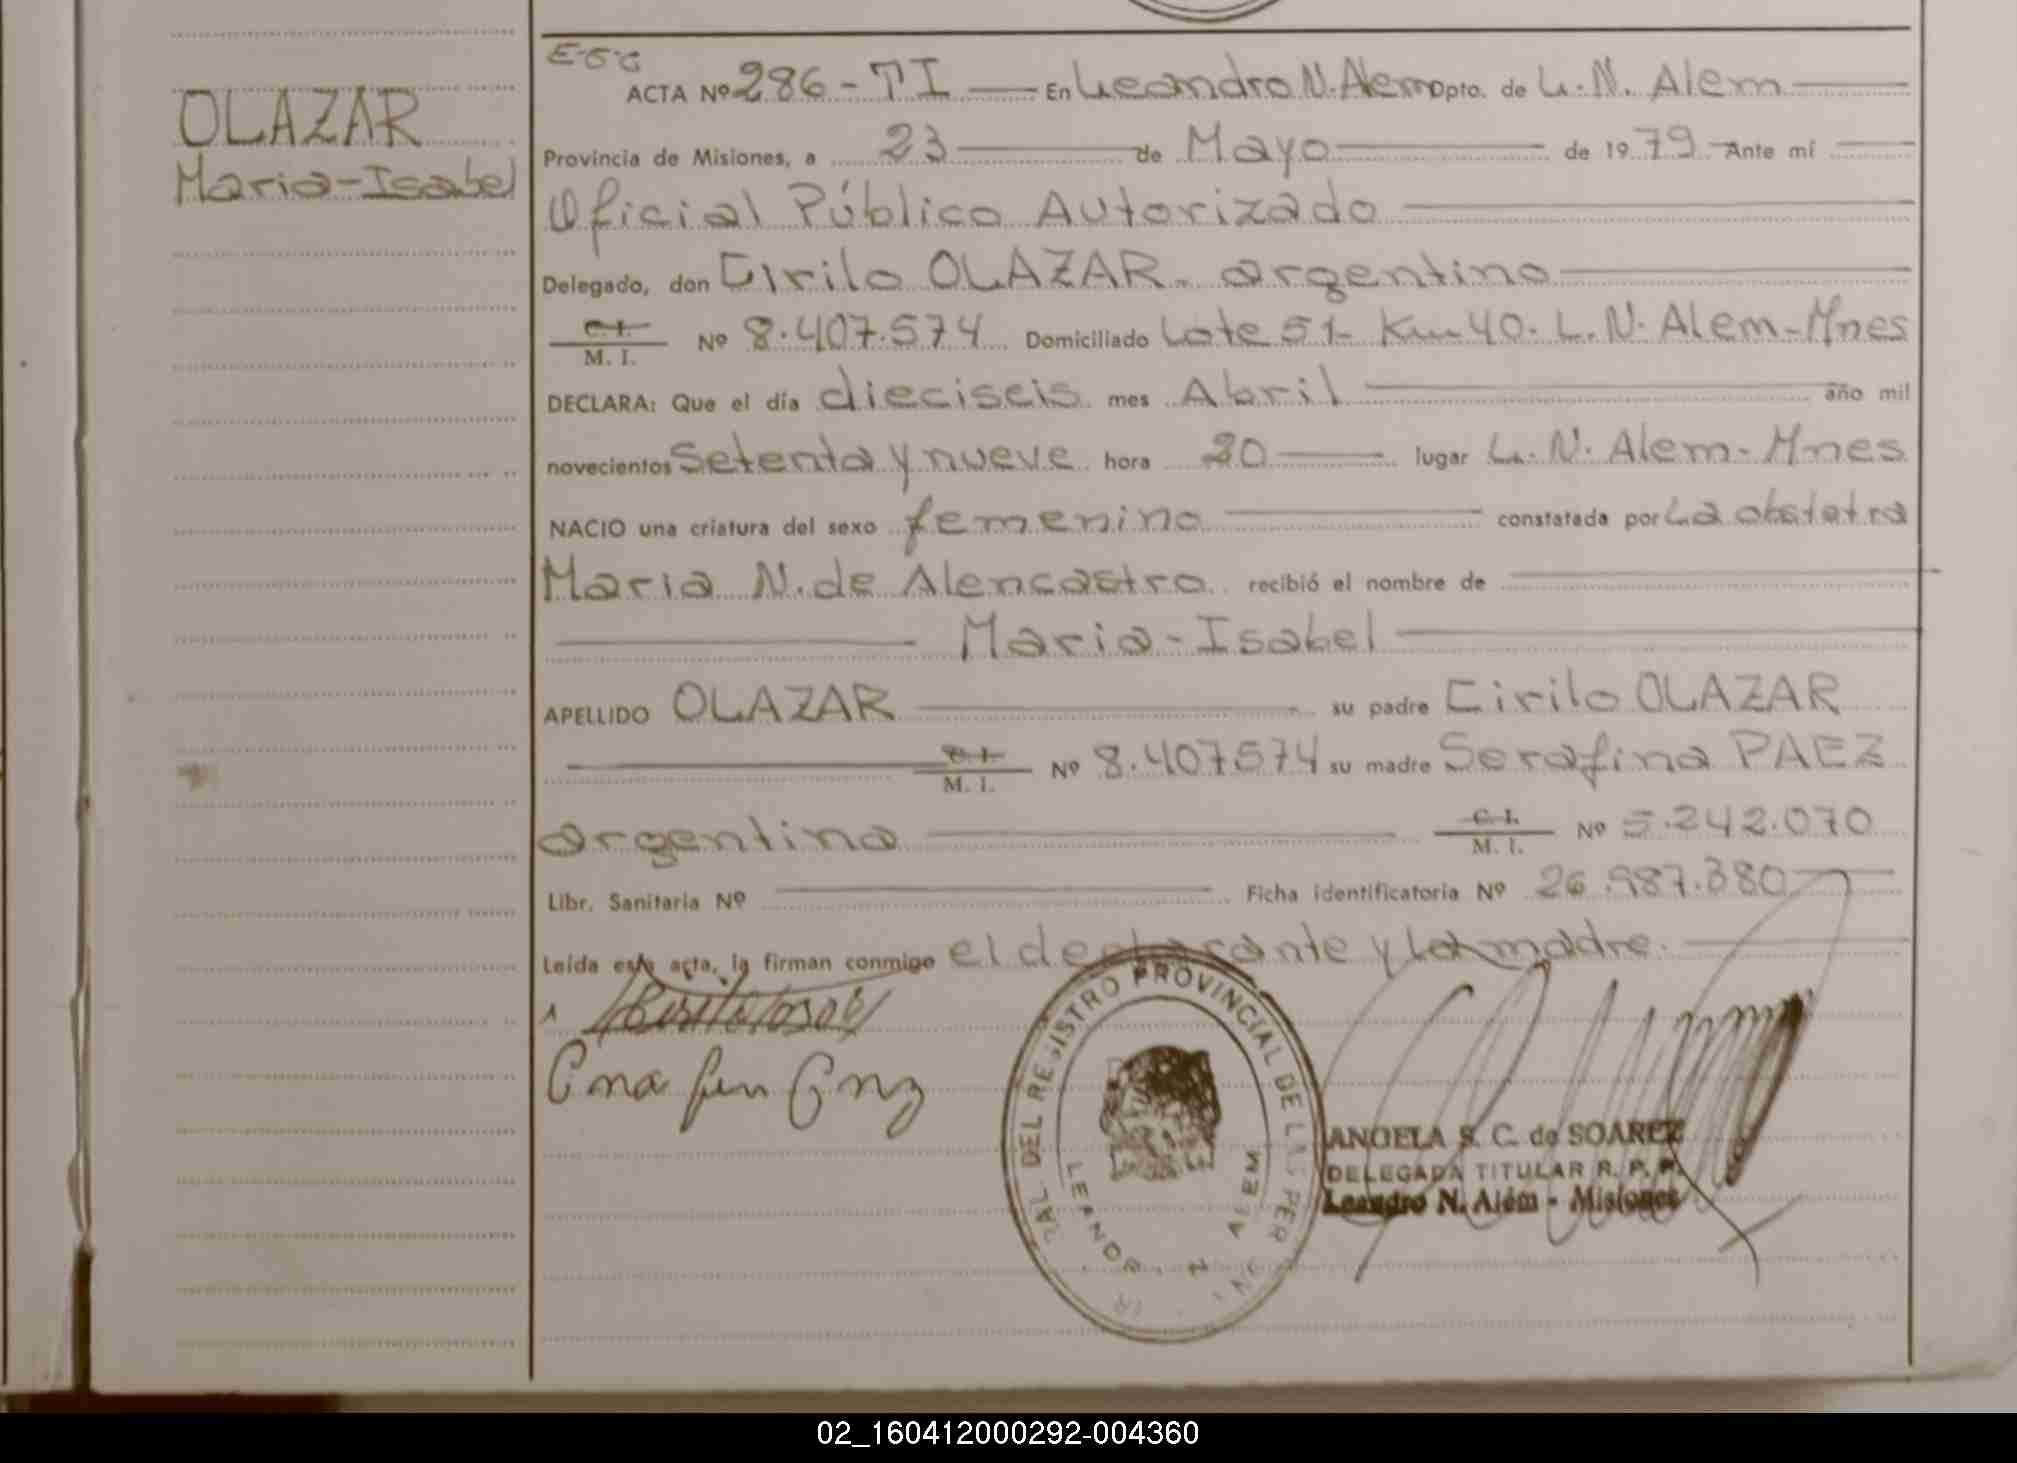 E-5-C
OLAZAR
Maria-Isabel
ACTA Nº 286-TI En Leandro N. Alem Dpto. de L.N. Alem
Provincia de Misiones, a 23 de Mayo de 1979 Ante mí
Oficial Público Autorizado
Delegado, don Cirilo OLAZAR. argentino
C. I.
M. I.
Nº 8.407.574 Domiciliado Lote 51- Km 40. L.N. Alem-Mnes
DECLARA: Que el día dieciseis mes Abril año mil
novecientos Setenta y nueve hora 20 lugar L.N. Alem-Mnes
NACIO una criatura del sexo femenino constatada por La obstetra
Maria N. de Alencastro recibió el nombre de
Maria-Isabel
APELLIDO OLAZAR su padre Cirilo OLAZAR
C. I.
M. I.
Nº 8.407574 su madre Serafina PAEZ
argentina
C. I.
M. I.
Nº 5.242.070
Libr. Sanitaria Nº Ficha identificatoria Nº 26.987.380
Leída esta acta, la firman conmigo el declarante y la madre.
REGISTRO PROVINCIAL DE LAS PERSONAS
LEANDRO N. ALEM
ANGELA S. C. de SOAREZ
DELEGADA TITULAR R. P. P.
Leandro N. Além - Misiones
02_160412000292-004360